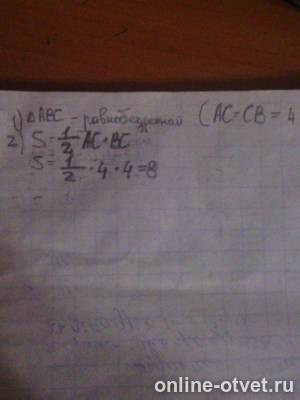 1) ΔABC - равнобедренный (AC=CB=4
2) S=1/2 AC·BC
S=1/2·4·4=8
online-otvet.ru